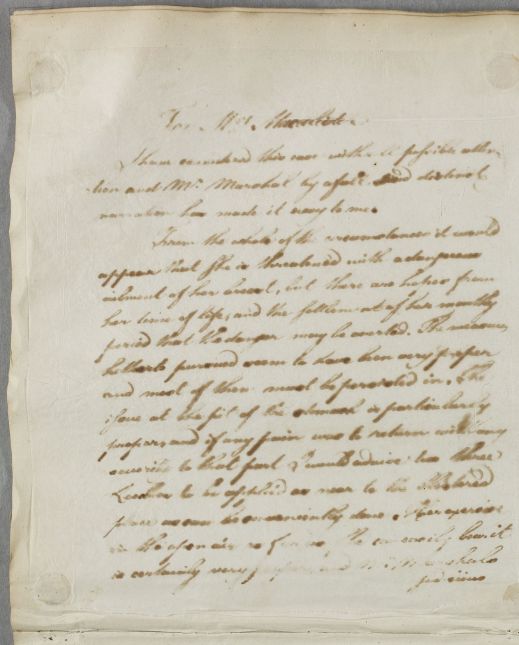 For Mrs.
I have considered this case with all possible atten-
tion and Mr. Marshal by a full and distinct
narration has made it easy to me.
From the whole of the circumstances it would
appear that She is threatened with a dangerous
ailment of her breast, but there are hopes from
her time of life, and the settlement of her monthly
period that the danger may be averted. The measures
hitherto pursued seem to have been very proper
and most of them must be persisted in. The
issue at the pit of the stomach is particularly
proper, and if any pain was to return with any
severity to that part I would advise two three
Leeches to be applied as near to the
place as can be conveniently done. Her exercise
in the open air as far as she can easily bear it
is certainly very proper, and Mr. Marshals